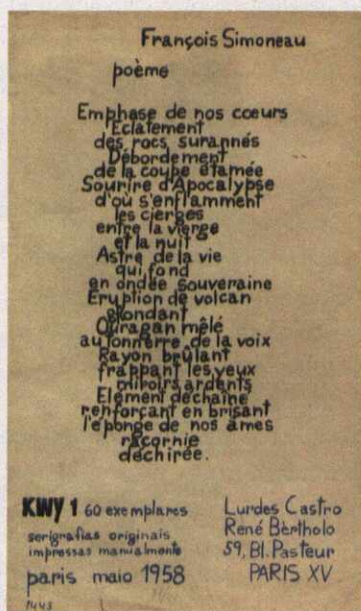 François Simoneau
poème
Emphase de nos cœurs
Eclatement
des rocs surannés
Débordement
de la coupe étamée
Sourire d'Apocalypse
d'où s'enflamment
les cierges
entre la vierge
et la nuit
Astre de la vie
qui fond
en ondée souveraine
Eruption de volcan
Ouragan mêlé
au tonnerre de la voix
Rayon brûlant
frappant les yeux
miroirs ardents
Elément déchaîné
renforçant en brisant
l'éponge de nos âmes
racornie
déchirée.
KWY 1 60 exemplares
serigrafias originais
impressas manualmente
paris maio 1958
Lurdes Castro
René Bèrtholo
59, Bl. Pasteur
PARIS XV